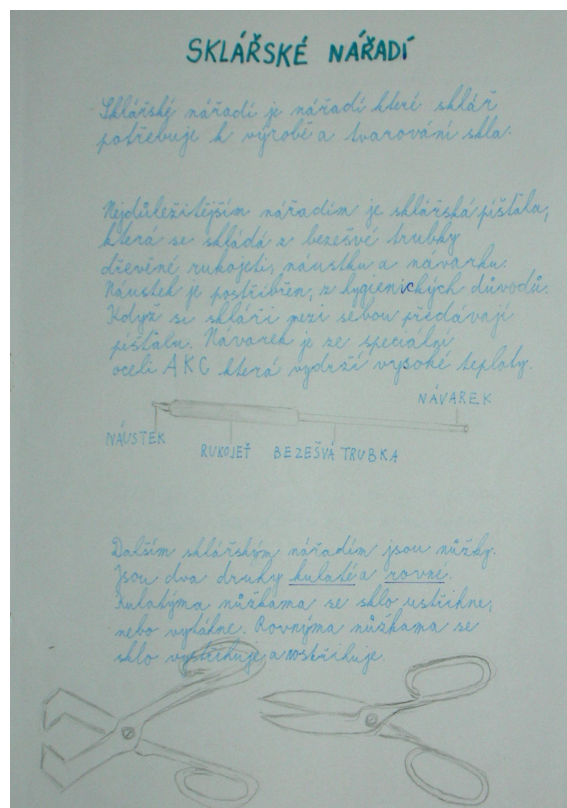 SKLÁŘSKÉ NÁŘADÍ
Sklářský nářadí je nářadí které sklář
potřebuje k výrobě a tvarování skla.
Nejdůležitějším nářadím je sklářská píšťala,
která se skládá z bezešvé trubky
dřevěné rukojeti, náustku a návarku.
Náustek je postříbřen, z hygienických důvodů.
Když si skláři mezi sebou předávají
píšťalu. Návarek je ze speciální
oceli AKC která vydrží vysoké teploty.
NÁVAREK
NÁUSTEK
RUKOJEŤ
BEZEŠVÁ TRUBKA
Dalším sklářským nářadím jsou nůžky.
Jsou dva druhy kulaté a rovné.
Kulatýma nůžkama se sklo ustřihne,
nebo vytáhne. Rovnýma nůžkama se
sklo vystřihuje a rostřihuje.